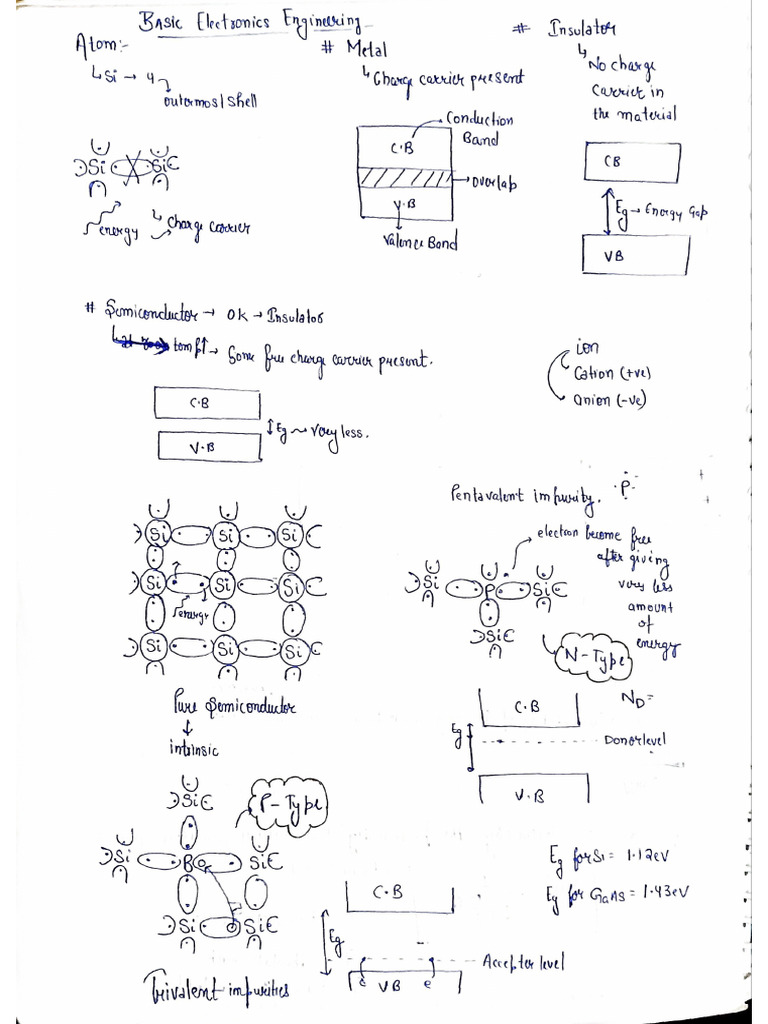 Basic Electronics Engineering
Atom:-
↳ Si → 4
outermost shell
Si Si
energy
↳ Charge carrier
# Metal
↳ Charge carrier present
Conduction
Band
C.B
overlap
V.B
Valence Band
# Insulator
↳ No charge
Carrier in
the material
CB
Eg → Energy Gap
VB
# Semiconductor → 0K → Insulator
temp↑ → Some free charge carrier present.
C.B
Eg → Very less.
V.B
ion
Cation (+ve)
anion (-ve)
Si Si Si
Si Si Si
energy
Si Si Si
Pure Semiconductor
↓
intrinsic
Pentavalent impurity. P
electron become free
after giving
very less
amount
of
energy
Si P Si
Si
N-Type
C.B
ND=
Eg
Donor level
V.B
P-Type
Si
Si B Si
Si Si
Trivalent impurities
C.B
Eg
Accepter level
e VB e
Eg for Si = 1.12eV
Eg for GaAs = 1.43eV